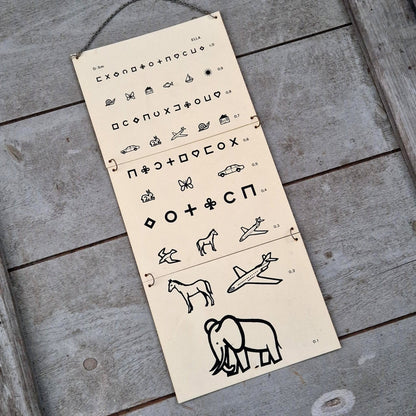 D: 5m
ELLA
1,0
0,9
0,8
0,7
0,6
0,5
0,4
0,3
0,1